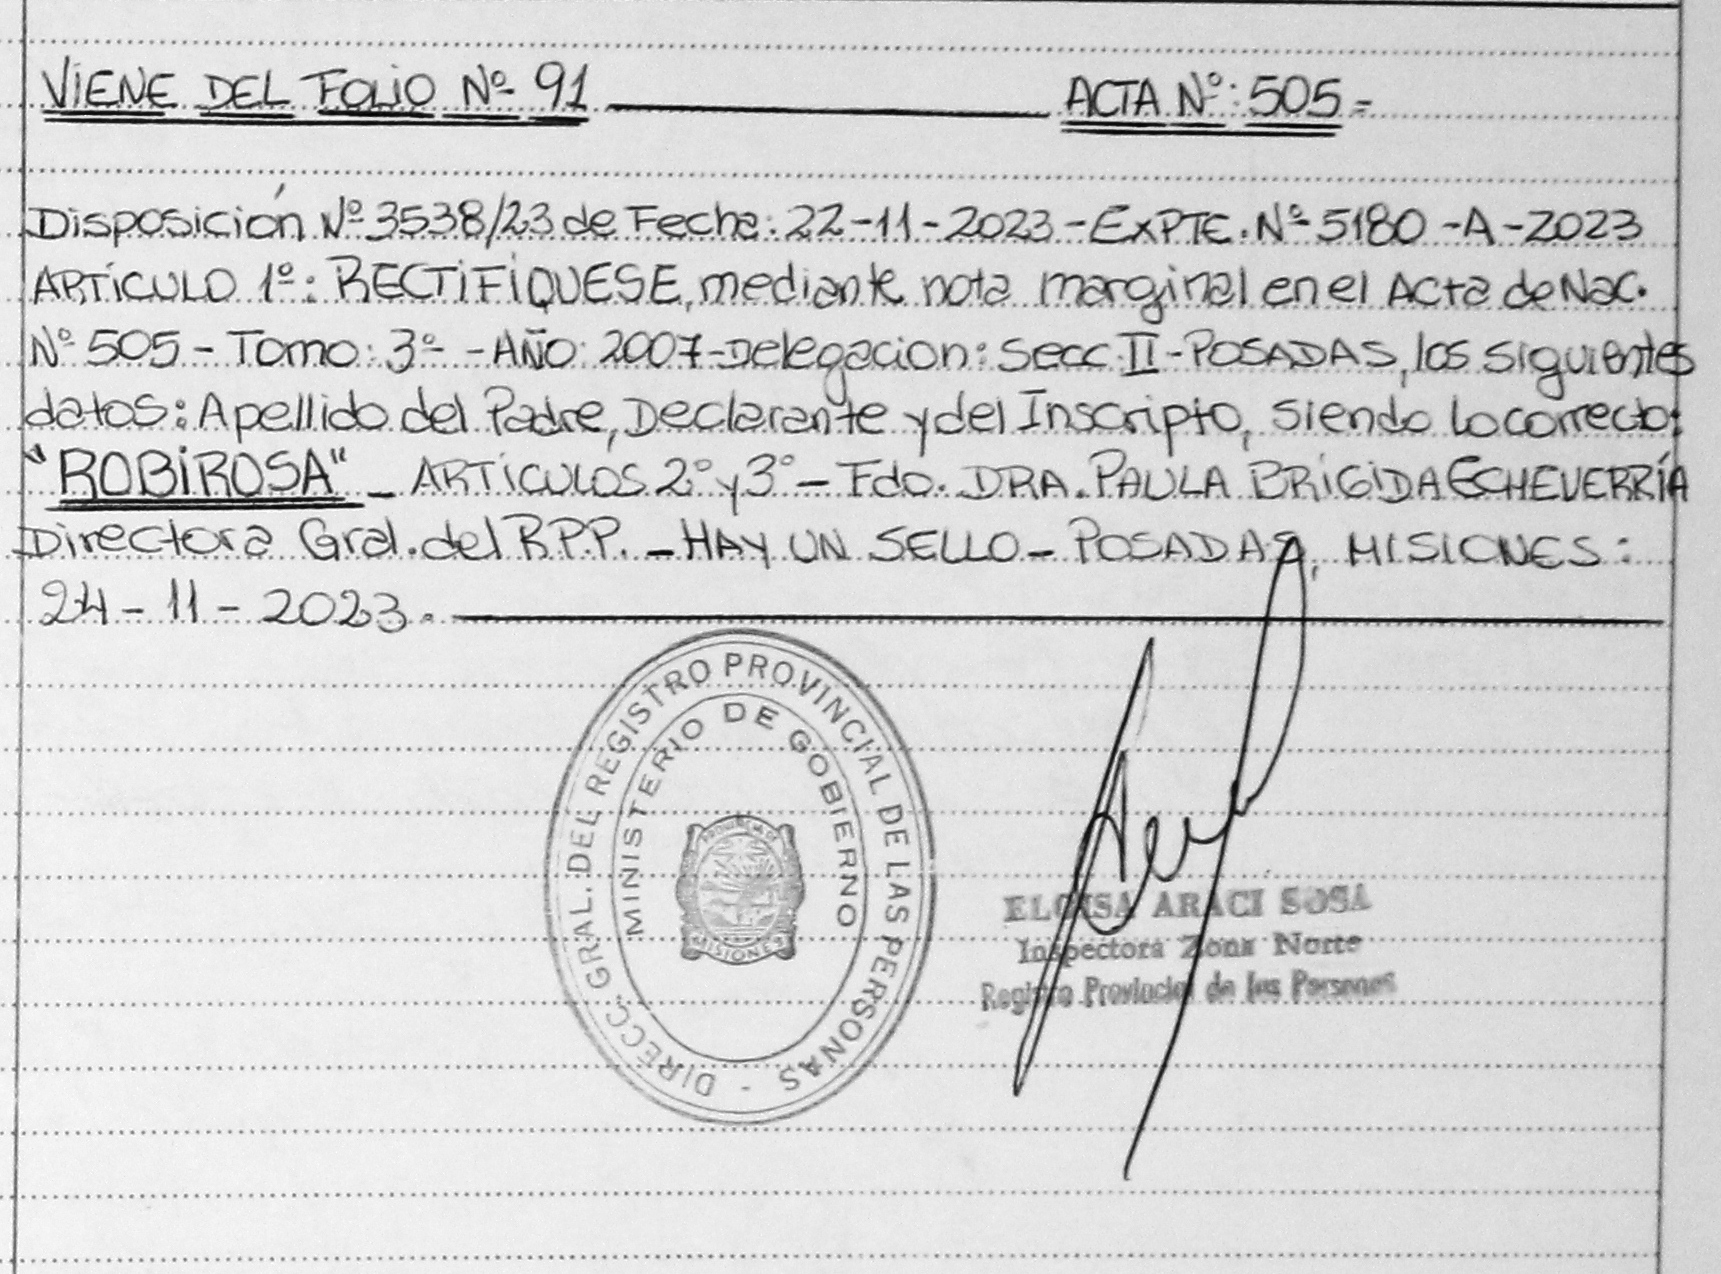 VIENE DEL FOLIO Nº 91 ACTA Nº: 505=
Disposición Nº 3538/23 de Fecha: 22-11-2023-EXPTE. Nº 5180-A-2023
ARTÍCULO 1º: RECTIFÍQUESE, mediante nota marginal en el Acta de Nac.
Nº 505 - Tomo: 3º - AÑO: 2007-Delegacion: Secc. II-POSADAS, los siguientes
datos: Apellido del Padre, Declarante y del Inscripto, siendo lo correcto:
"ROBIROSA" - ARTÍCULOS 2º y 3º - Fdo. DRA. PAULA BRIGIDA ECHEVERRÍA
Directora Gral. del RPP. - HAY UN SELLO - POSADAS, MISIONES:
24-11-2023.
DIRECC. GRAL. DEL REGISTRO PROVINCIAL DE LAS PERSONAS -
MINISTERIO DE GOBIERNO
PROVINCIA DE
MISIONES
ELOISA ARACI SOSA
Inspectora Zona Norte
Registro Provincial de las Personas